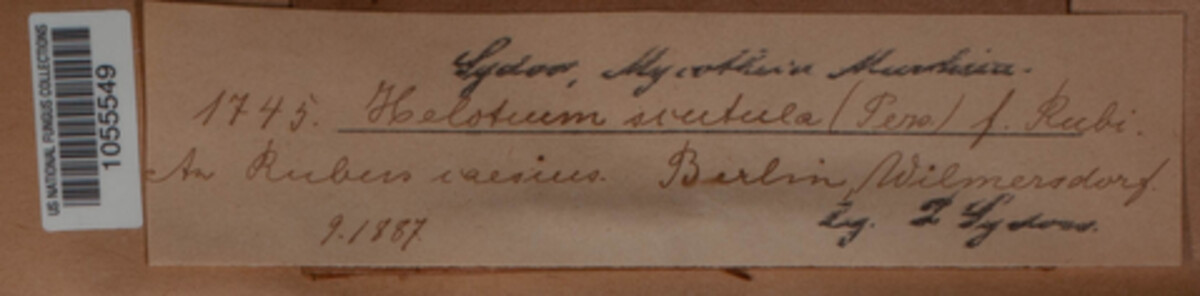 US NATIONAL FUNGUS COLLECTIONS
1055549
Sydow, Mycotheca Marchica.
1745. Helotium scutula (Pers) f. Rubi.
An Rubus caesius. Berlin, Wilmersdorf.
9.1887.
Lg. P Sydow.